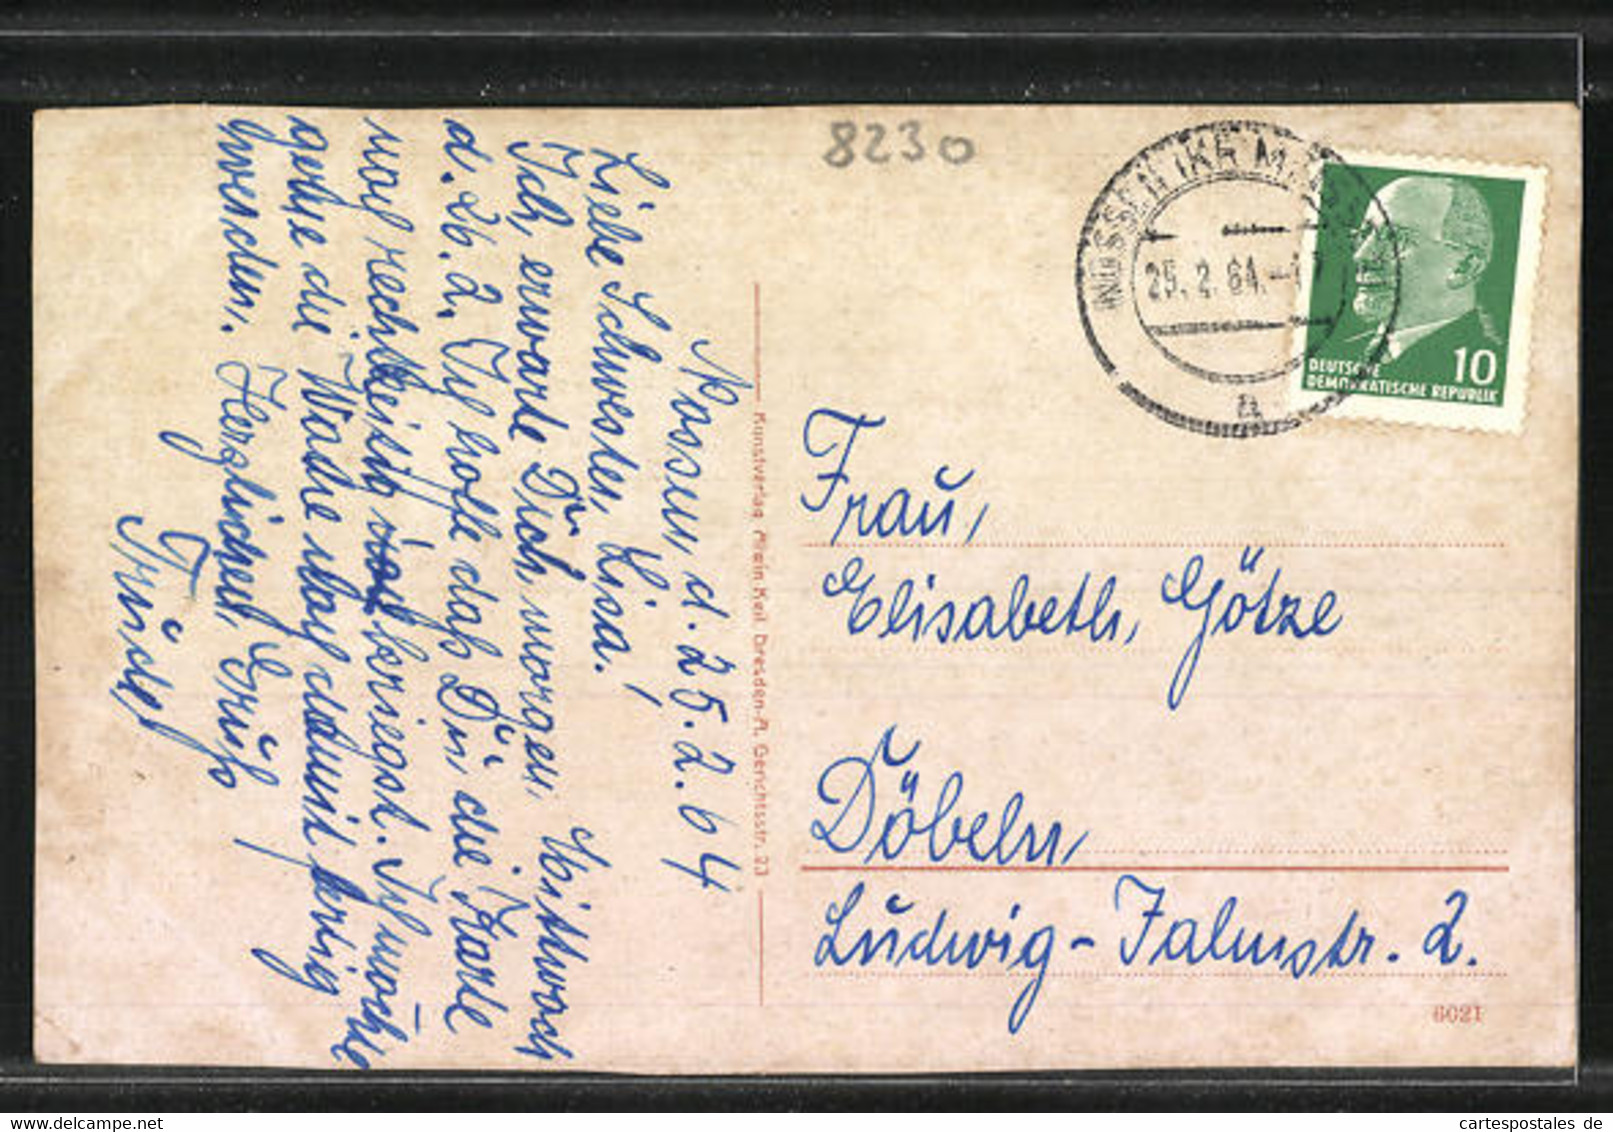 8230
NOSSEN (KR M
25. 2. 64.
a
10
DEUTSCHE
DEMOKRATISCHE REPUBLIK
Nossen, d. 25. 2. 64
Liebe Schwester, Lisa!
Ich, erwarte Dich, morgen, Mittwoch
d. 26. 2. Ich hoffe daß Du die Karte
noch rechtzeitig noch kriegst. Ich möchte
gerne die Wäsche noch damit fertig
werden. Herzlichen, Gruß
Trudel
Kunstverlag Alwin Keil Dresden-A. Gerichtsstr. 23
Frau,
Elisabeth, Götze
Döbeln,
Ludwig-Jahnstr. 2.
6021
cartespostales de